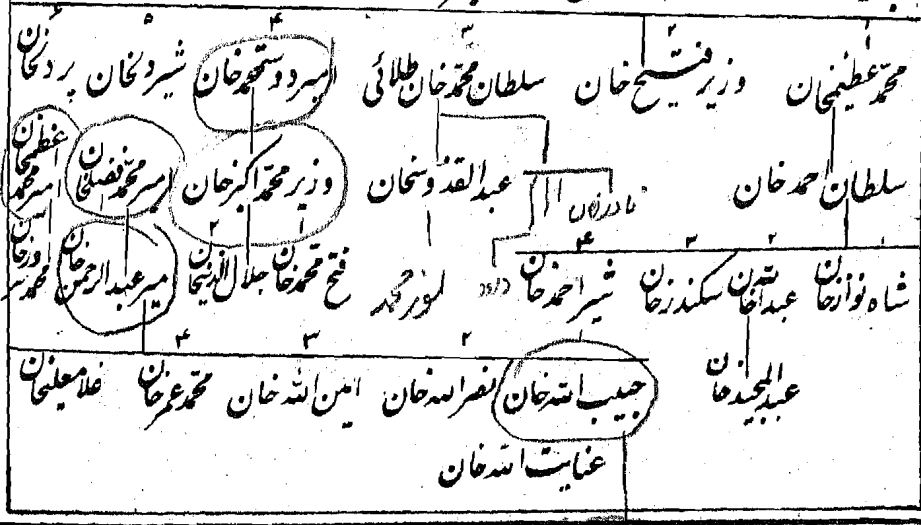 ۱ ۲ ۳ ۴ ۵ ۶
محمد عظیمخان وزیر فتح خان سلطان محمد خان طلائی امیر دوستمحمد خان شیردلخان پردلخان
سلطان احمد خان نادرخان عبدالقدوسخان وزیر محمد اکبر خان امیر محمد افضلخان امیر محمد اعظمخان
۱ ۲ ۳ ۴ ۱ ۲
شاه نواز خان عبدالله خان سکندر خان شیر احمد خان داود نور محمد فتح محمد خان جلال الدینخان میر عبدالرحمن خان محمد سرور خان
عبدالمجید خان
۲ ۳ ۴
حبیب الله خان نصرالله خان امین الله خان محمد عمر خان غلامعلیخان
عنایت الله خان